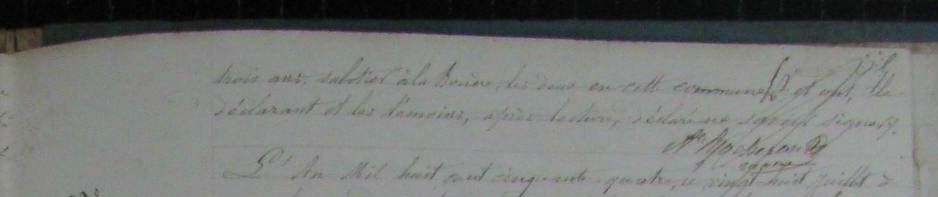 trois ans, sabotier à la Bruère, les deux en cette commune et ont, le
déclarant et les témoins, après lecture, déclaré ne savoir signer.
L'An Mil huit cent cinquante quatre, le vingt huit juillet à